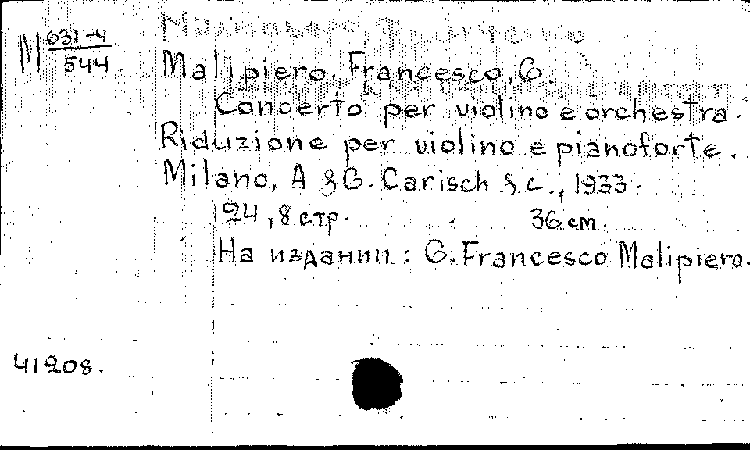 М 631-4
544
Malipiero, Francesco, G.
Concerto per violino e orchestra.
Riduzione per violino e pianoforte.
Milano, A & G. Carisch & c., 1933.
24, 8 стр. 36 см.
На издании: G. Francesco Malipiero.
41208.